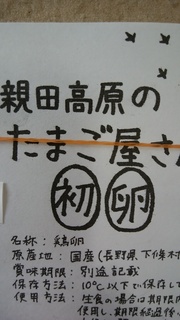 親田高原の
たまご屋さ
初 卵
名称：鶏卵
原産地：国産(長野県下條村
賞味期限：別途記載
保存方法：10℃以下で保存して
使用方法：生食の場合は期限内
使用し、期限経過後